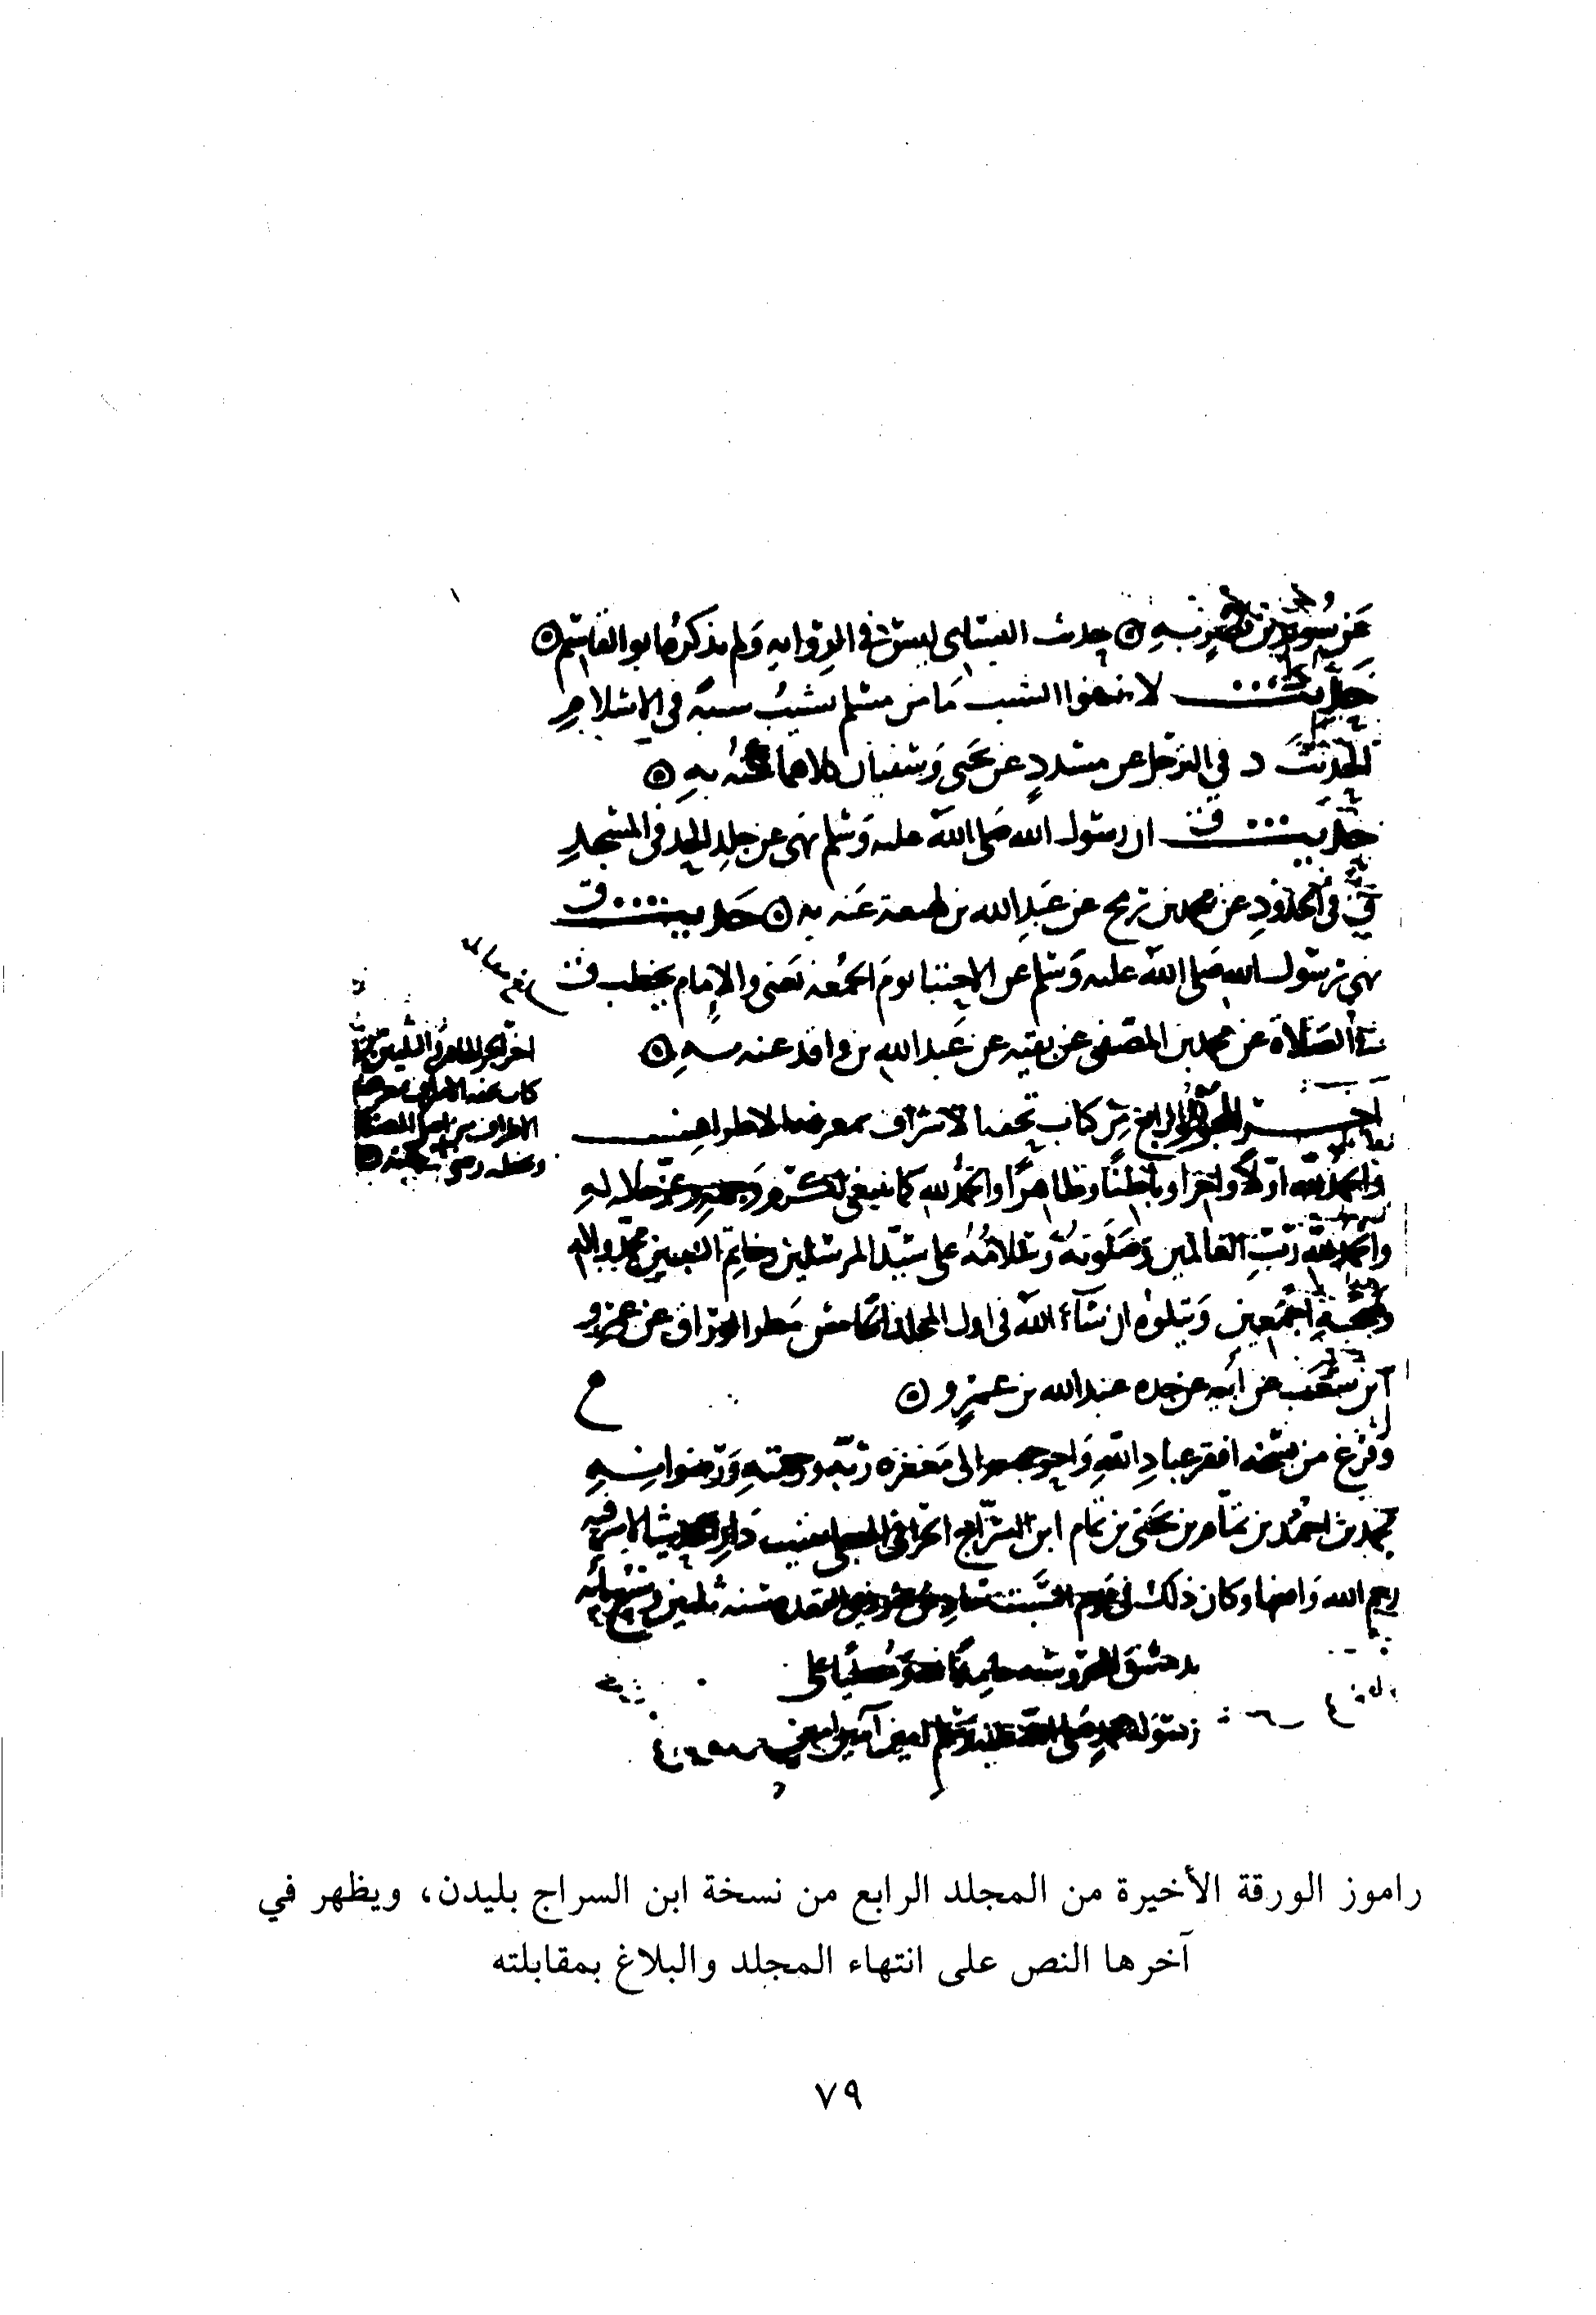 عن سويد بن نصر به ه حديث النسائي ليس في الرواية ولم يذكره ابو القاسم ه
حديث لا تنتفوا الشيب ما من مسلم يشيب شيبة في الاسلام
الحديث د في الترجل عن مسدد عن يحيى وسفيان كلاهما عنه به ه
حديث ق ان رسول الله صلى الله عليه وسلم نهى عن جلد الحد في المسجد
ق في الحدود عن محمد بن رمح عن عبد الله بن لهيعة عنه به ه حديث ق
نهى رسول الله صلى الله عليه وسلم عن الاحتبا يوم الجمعة يعني والإمام يخطب ق
في الصلاة عن محمد بن المصفى عن بقية عن عبد الله بن واقد عنه به ه
آخر المجلد الرابع من كتاب تحفة الأشراف بمعرفة الاطراف
والحمد لله اولا واخرا وباطنا وظاهرا والحمد لله كما ينبغي لكرم وجهه وعز جلاله
والحمد لله رب العالمين وصلوته وسلامه على سيد المرسلين وخاتم النبيين محمد واله
وصحبه اجمعين ويتلوه ان شاء الله في اول المجلد الخامس مطر الوراق عن عمرو
ابن شعيب عن أبيه عن جده عبد الله بن عمرو ه
وفرغ من نسخه افقر عباد الله واحوجهم الى مغفرة ربه ورحمته ورضوانه
محمد بن احمد بن تمام بن يحيى بن تمام ابن السراج الحراني دار الحديث الاشرفية
رحم الله واقفها وكان ذلك في يوم السبت سادس عشر ذي القعدة سنة ثلثين وسبعمائه
بدمشق المحروسة حامدا ومصليا على
رسوله محمد صلى الله عليه وسلم امين آمين امين
راموز الورقة الأخيرة من المجلد الرابع من نسخة ابن السراج بليدن، ويظهر في
آخرها النص على انتهاء المجلد والبلاغ بمقابلته
٧٩